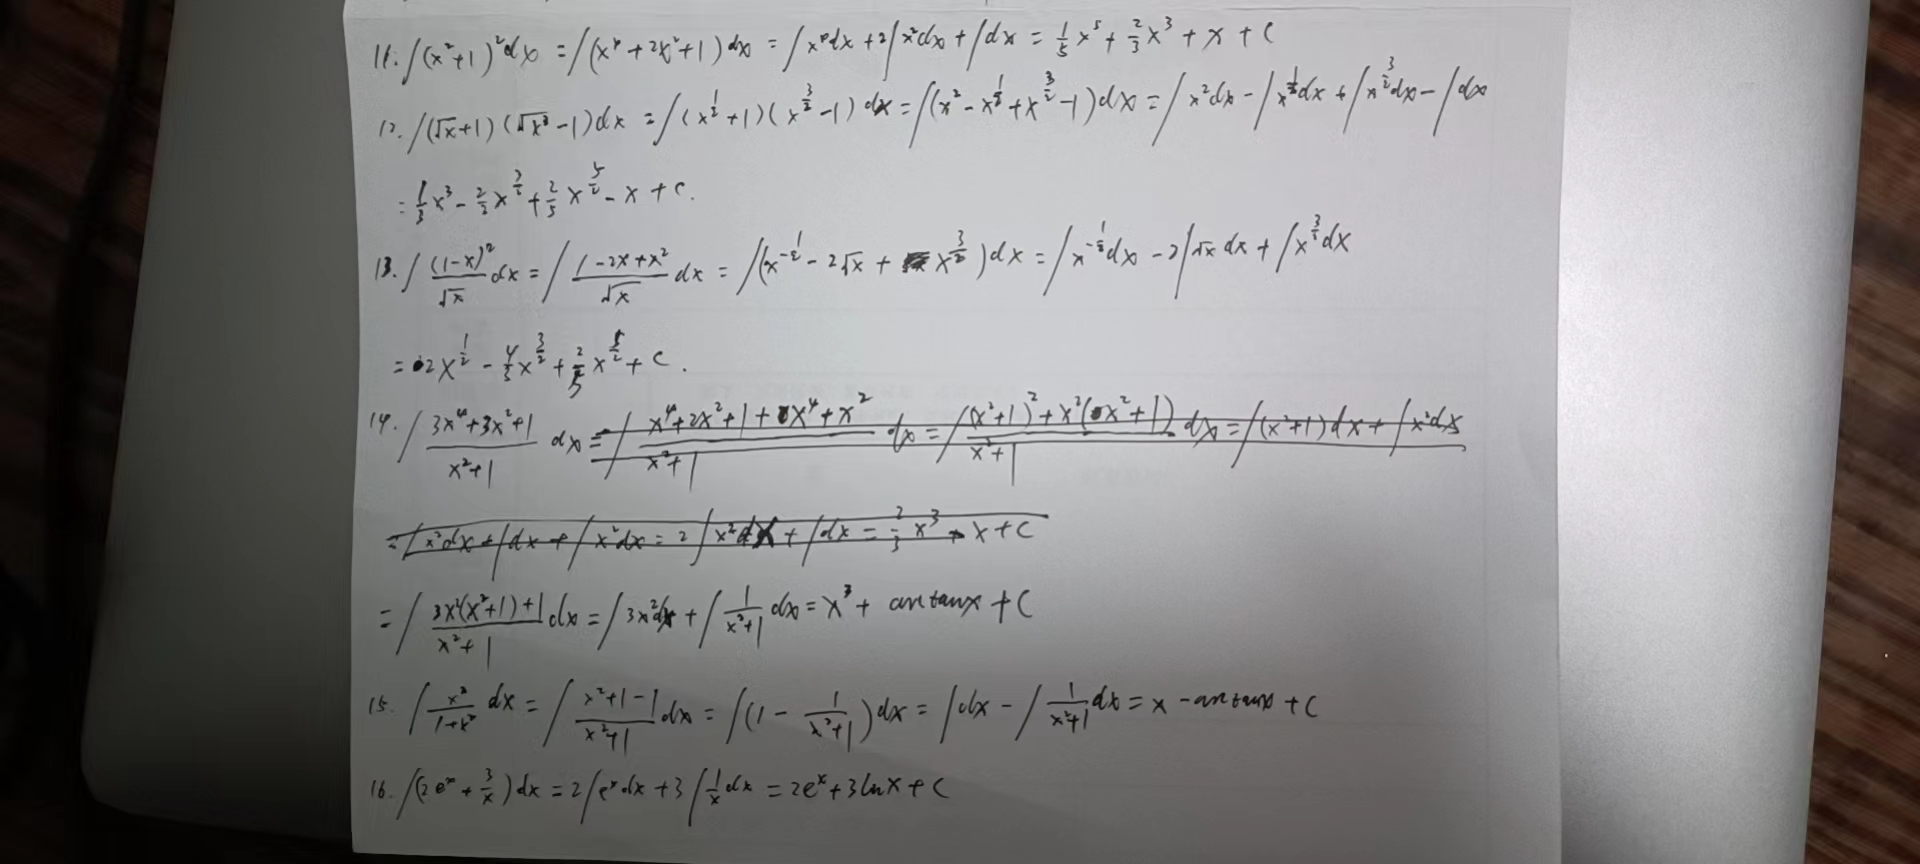 11. ∫(x²+1)²dx = ∫(x⁴+2x²+1)dx = ∫x⁴dx+2∫x²dx+∫dx = 1/5 x⁵ + 2/3 x³ + x + C
12. ∫(√x+1)(√x³-1)dx = ∫(x^(1/2)+1)(x^(3/2)-1)dx = ∫(x²-x^(1/2)+x^(3/2)-1)dx = ∫x²dx-∫x^(1/2)dx+∫x^(3/2)dx-∫dx
= 1/3 x³ - 2/3 x^(3/2) + 2/5 x^(5/2) - x + C.
13. ∫(1-x)²/√x dx = ∫(1-2x+x²)/√x dx = ∫(x^(-1/2)-2√x+x^(3/2))dx = ∫x^(-1/2)dx-2∫√x dx+∫x^(3/2)dx
= 2x^(1/2) - 4/3 x^(3/2) + 2/5 x^(5/2) + C.
14. ∫(3x⁴+3x²+1)/(x²+1) dx = ∫(x⁴+2x²+1+x⁴+x²)/(x²+1) dx = ∫((x²+1)²+x²(x²+1))/(x²+1) dx = ∫(x²+1)dx+∫x²dx
= ∫x²dx+∫dx+∫x²dx = 2∫x²dx+∫dx = 2/3 x³ + x + C
= ∫(3x²(x²+1)+1)/(x²+1) dx = ∫3x²dx + ∫1/(x²+1) dx = x³ + arctanx + C
15. ∫x²/(1+x²) dx = ∫(x²+1-1)/(x²+1) dx = ∫(1 - 1/(x²+1))dx = ∫dx - ∫1/(x²+1) dx = x - arctanx + C
16. ∫(2eˣ+3/x)dx = 2∫eˣdx+3∫1/x dx = 2eˣ+3lnx+C